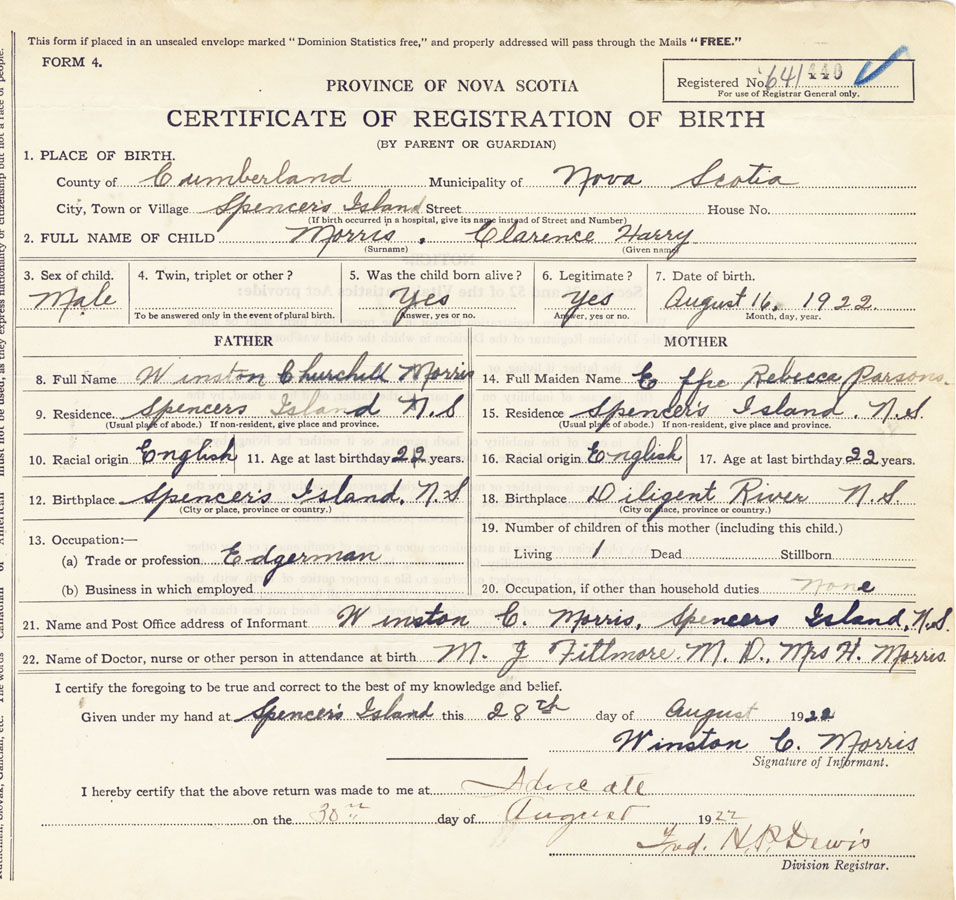 This form if placed in an unsealed envelope marked "Dominion Statistics free," and properly addressed will pass through the Mails "FREE."
FORM 4.
Registered No. 641 440
For use of Registrar General only.
PROVINCE OF NOVA SCOTIA
CERTIFICATE OF REGISTRATION OF BIRTH
(BY PARENT OR GUARDIAN)
1. PLACE OF BIRTH.
County of Cumberland Municipality of Nova Scotia
City, Town or Village Spencer's Island Street House No.
(If birth occurred in a hospital, give its name instead of Street and Number)
2. FULL NAME OF CHILD Morris, Clarence Harry
(Surname) (Given name)
3. Sex of child. 4. Twin, triplet or other? 5. Was the child born alive? 6. Legitimate? 7. Date of birth.
Male Yes Yes August 16, 1922.
To be answered only in the event of plural birth. Answer, yes or no. Answer, yes or no. Month, day, year.
FATHER
8. Full Name Winston Churchill Morris
9. Residence. Spencers Island N.S
(Usual place of abode.) If non-resident, give place and province.
10. Racial origin English 11. Age at last birthday 22 years.
12. Birthplace Spencer's Island, N.S
(City or place, province or country.)
13. Occupation:—
(a) Trade or profession Edgerman
(b) Business in which employed
MOTHER
14. Full Maiden Name Effie Rebecca Parsons.
15. Residence Spencer's Island. N.S.
(Usual place of abode.) If non-resident, give place and province.
16. Racial origin English 17. Age at last birthday 22 years.
18. Birthplace Diligent River N.S.
(City or place, province or country.)
19. Number of children of this mother (including this child.)
Living 1 Dead Stillborn
20. Occupation, if other than household duties None
21. Name and Post Office address of Informant Winston C. Morris, Spencers Island, N.S.
22. Name of Doctor, nurse or other person in attendance at birth M. J Fillmore. M. D., Mrs H. Morris.
I certify the foregoing to be true and correct to the best of my knowledge and belief.
Given under my hand at Spencer's Island this 28th day of August 1922
Winston C. Morris
Signature of Informant.
I hereby certify that the above return was made to me at Advocate
on the 30 day of August 1922
Fred. H.P. Dewis
Division Registrar.